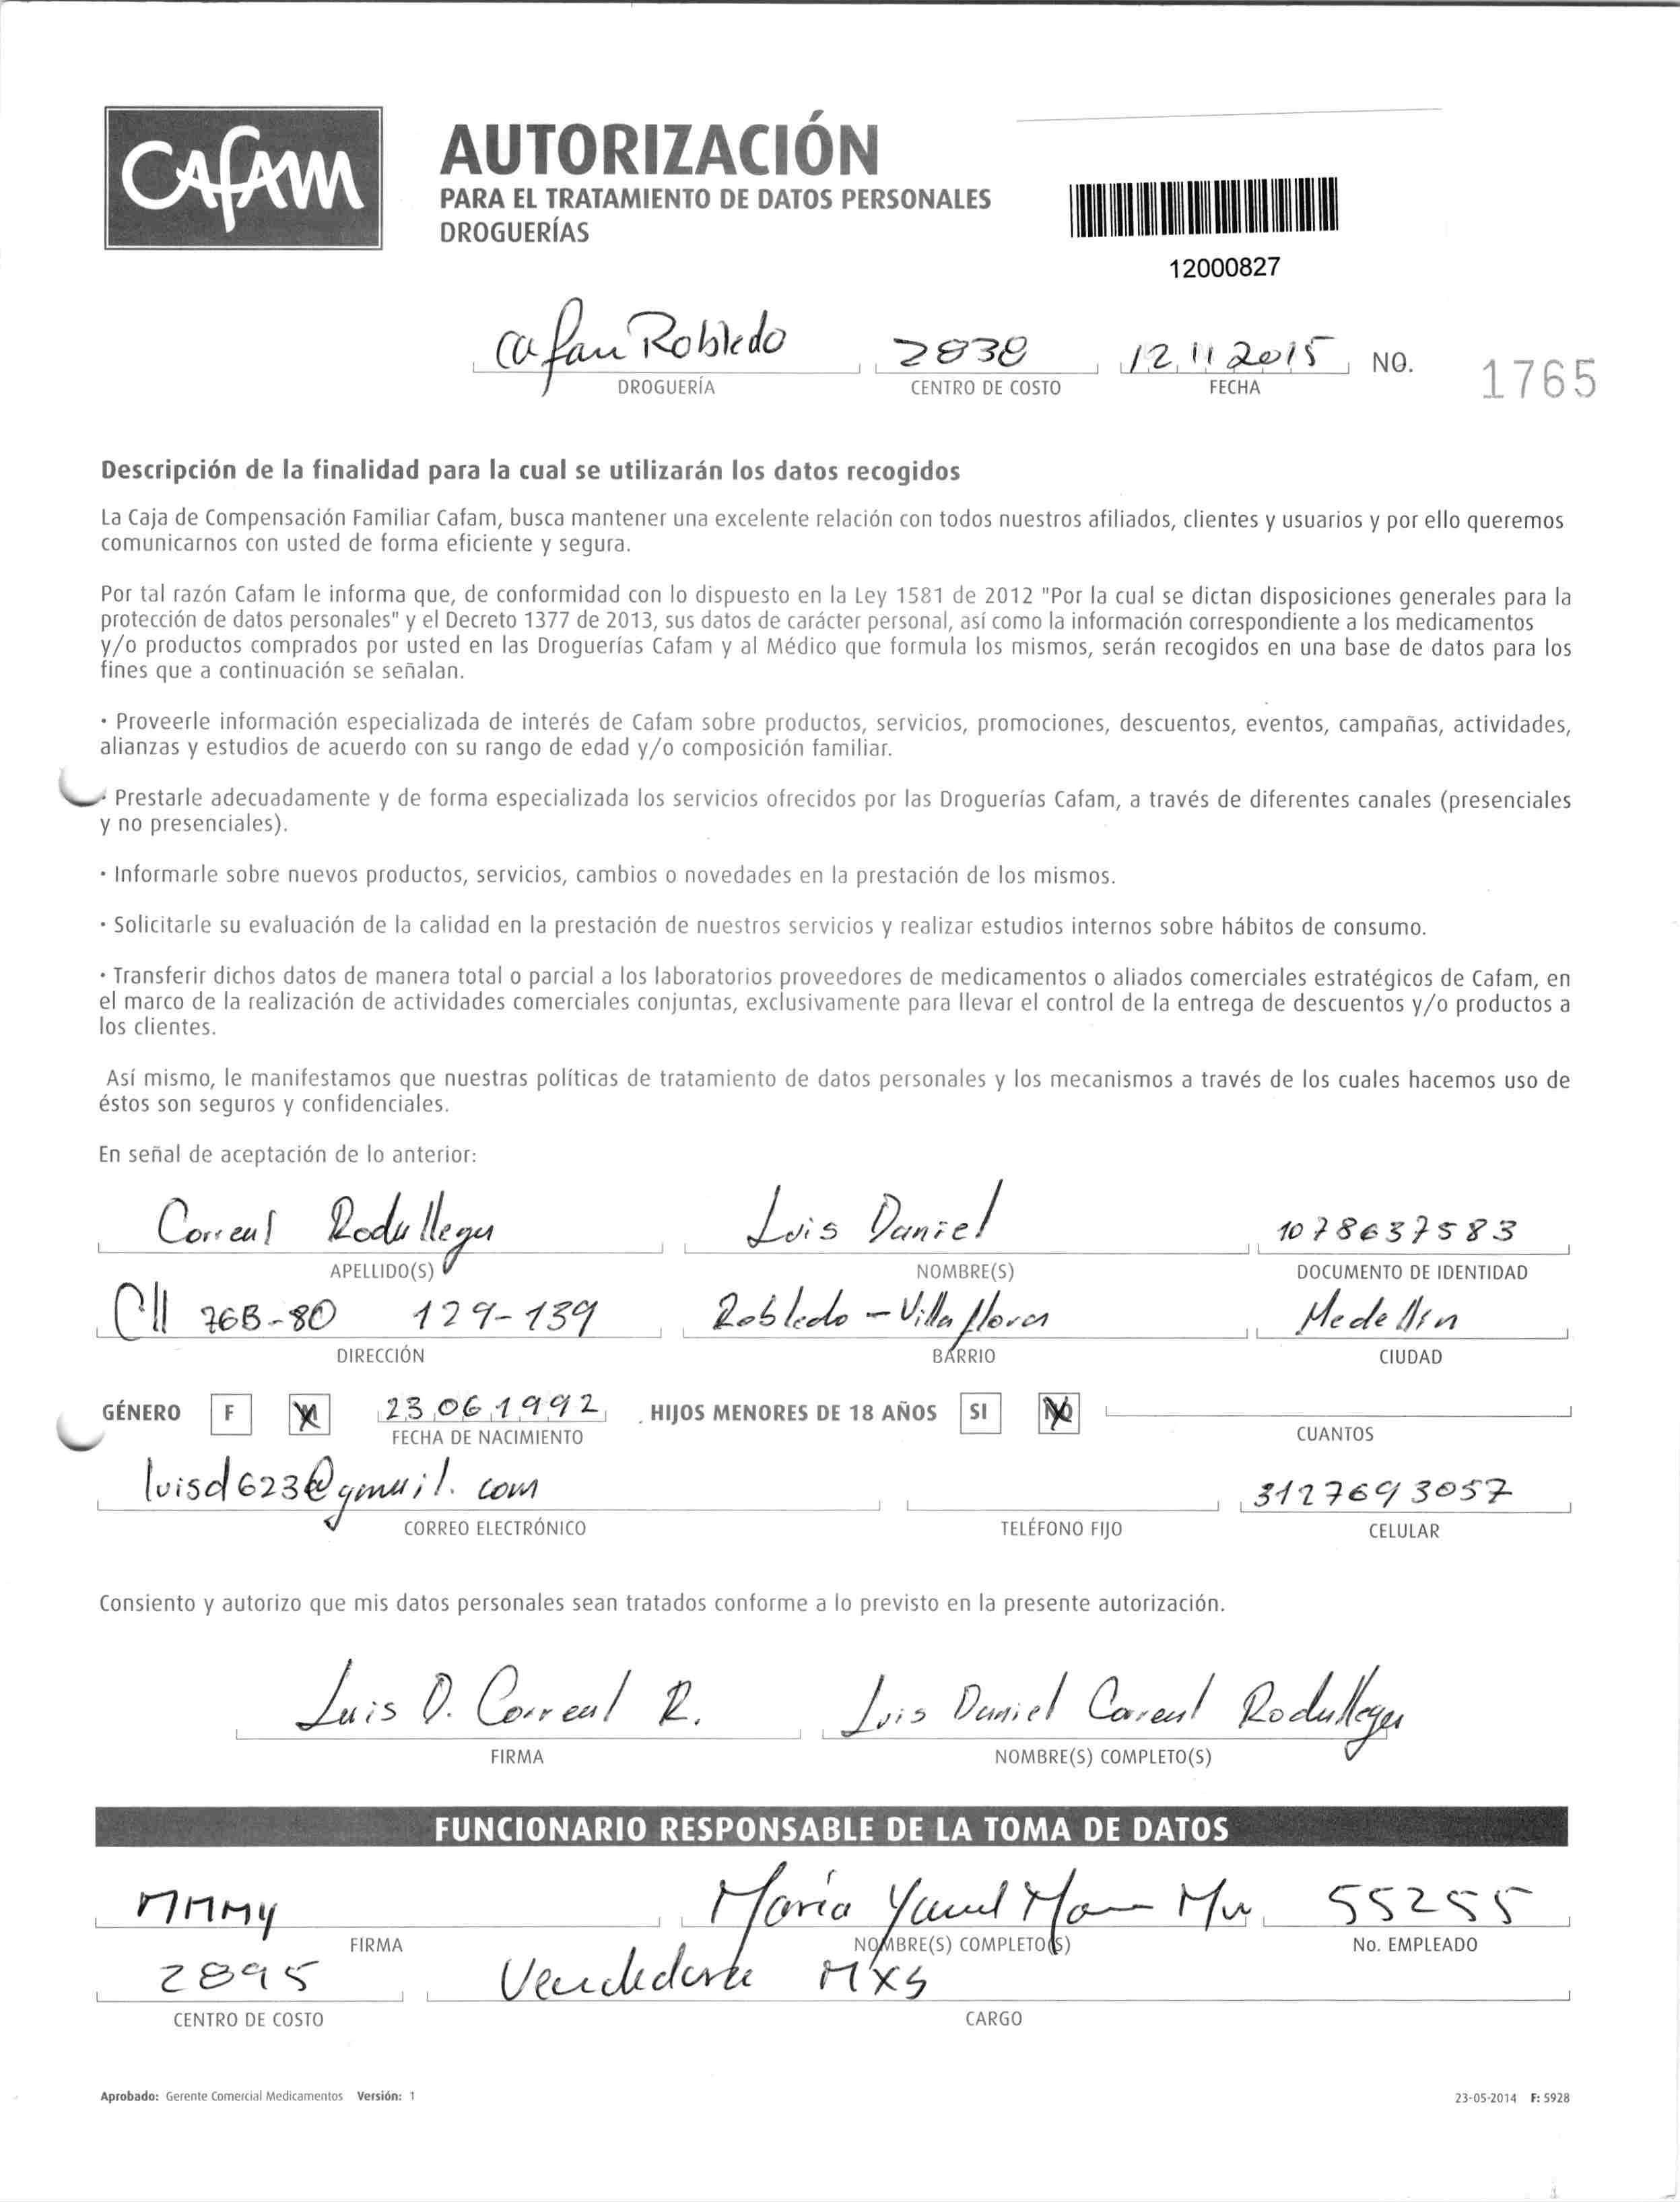 Cafam
AUTORIZACIÓN
PARA EL TRATAMIENTO DE DATOS PERSONALES
DROGUERÍAS
12000827
Cafam Robledo 2838 12 11 2015 NO. 1765
DROGUERÍA CENTRO DE COSTO FECHA
Descripción de la finalidad para la cual se utilizarán los datos recogidos
La Caja de Compensación Familiar Cafam, busca mantener una excelente relación con todos nuestros afiliados, clientes y usuarios y por ello queremos
comunicarnos con usted de forma eficiente y segura.
Por tal razón Cafam le informa que, de conformidad con lo dispuesto en la Ley 1581 de 2012 "Por la cual se dictan disposiciones generales para la
protección de datos personales" y el Decreto 1377 de 2013, sus datos de carácter personal, así como la información correspondiente a los medicamentos
y/o productos comprados por usted en las Droguerías Cafam y al Médico que formula los mismos, serán recogidos en una base de datos para los
fines que a continuación se señalan.
· Proveerle información especializada de interés de Cafam sobre productos, servicios, promociones, descuentos, eventos, campañas, actividades,
alianzas y estudios de acuerdo con su rango de edad y/o composición familiar.
· Prestarle adecuadamente y de forma especializada los servicios ofrecidos por las Droguerías Cafam, a través de diferentes canales (presenciales
y no presenciales).
· Informarle sobre nuevos productos, servicios, cambios o novedades en la prestación de los mismos.
· Solicitarle su evaluación de la calidad en la prestación de nuestros servicios y realizar estudios internos sobre hábitos de consumo.
· Transferir dichos datos de manera total o parcial a los laboratorios proveedores de medicamentos o aliados comerciales estratégicos de Cafam, en
el marco de la realización de actividades comerciales conjuntas, exclusivamente para llevar el control de la entrega de descuentos y/o productos a
los clientes.
Así mismo, le manifestamos que nuestras políticas de tratamiento de datos personales y los mecanismos a través de los cuales hacemos uso de
éstos son seguros y confidenciales.
En señal de aceptación de lo anterior:
Correal Rodallega Luis Daniel 1078637583
APELLIDO(S) NOMBRE(S) DOCUMENTO DE IDENTIDAD
Cll 76B-80 129-139 Robledo - Villa flores Medellín
DIRECCIÓN BARRIO CIUDAD
GÉNERO F M 23 06 1992 HIJOS MENORES DE 18 AÑOS SI NO
FECHA DE NACIMIENTO CUANTOS
luisd623@gmail.com 3127693057
CORREO ELECTRÓNICO TELÉFONO FIJO CELULAR
Consiento y autorizo que mis datos personales sean tratados conforme a lo previsto en la presente autorización.
Luis D. Correal R. Luis Daniel Correal Rodallega
FIRMA NOMBRE(S) COMPLETO(S)
FUNCIONARIO RESPONSABLE DE LA TOMA DE DATOS
MMMY María 55255
FIRMA NOMBRE(S) COMPLETO(S) No. EMPLEADO
2895 Vendedora MXS
CENTRO DE COSTO CARGO
Aprobado: Gerente Comercial Medicamentos Versión: 1 23-05-2014 F: 5928